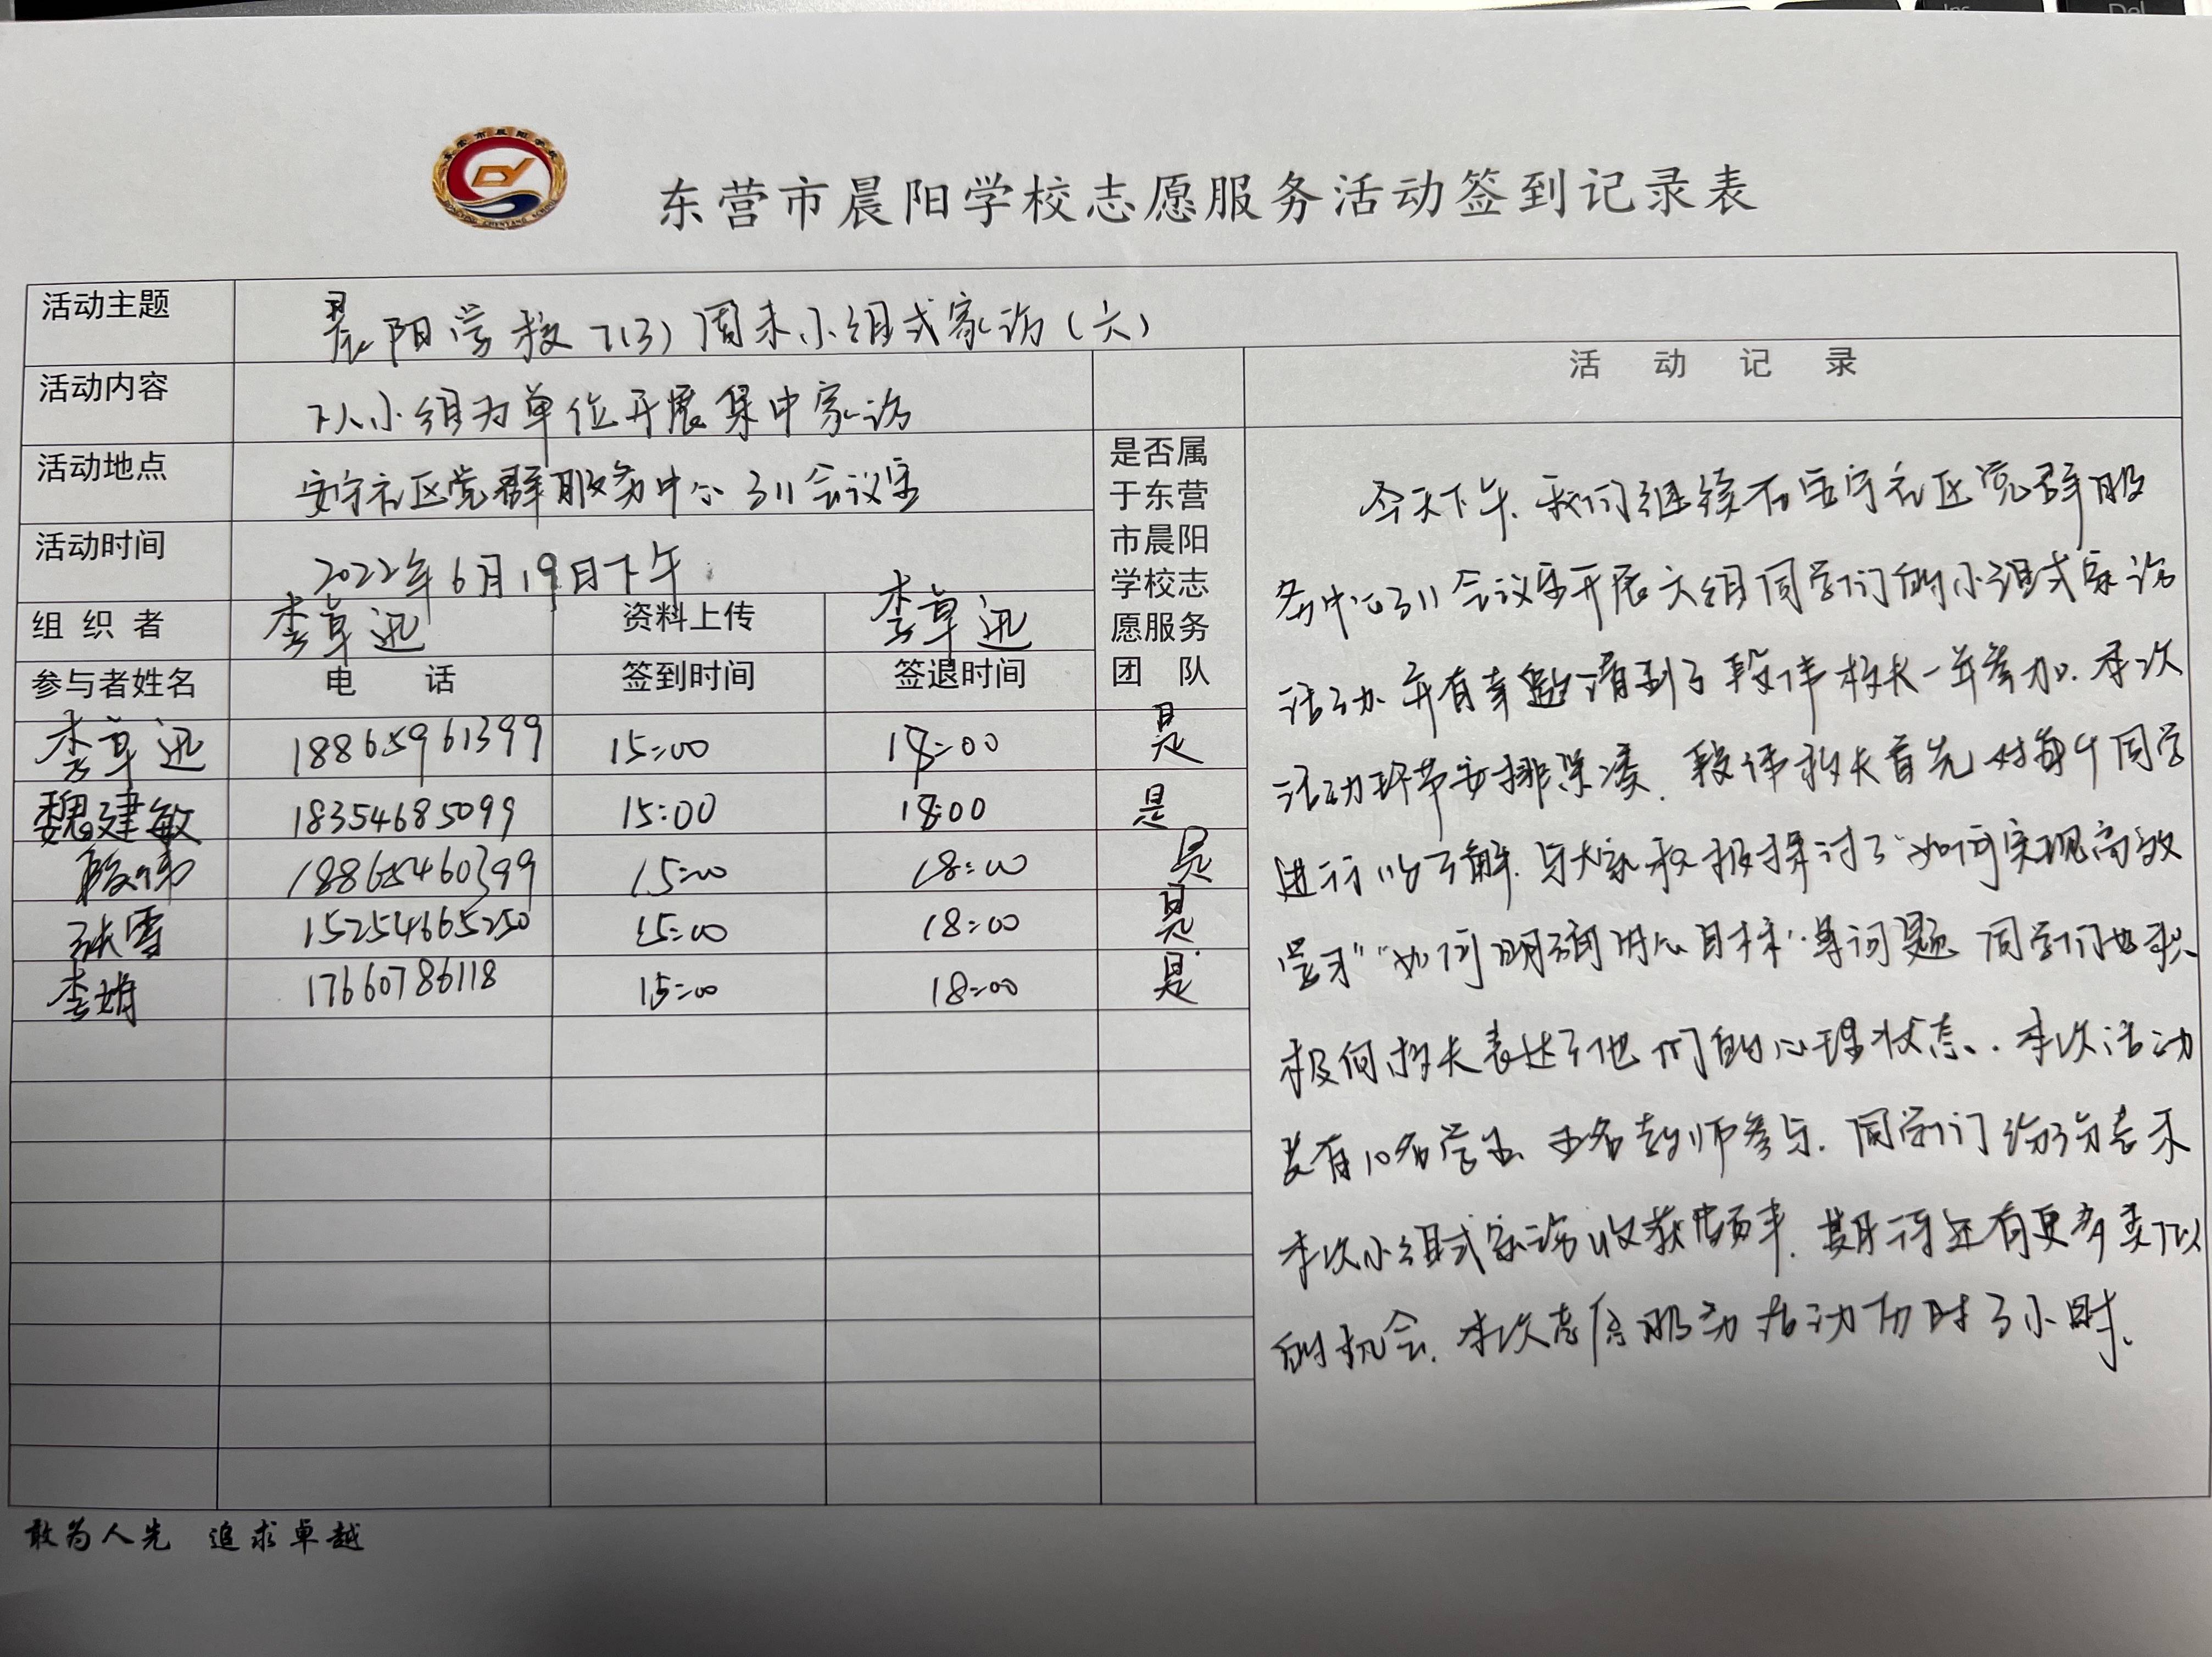 Ins
Del
东营市晨阳学校志愿服务活动签到记录表
活动主题 晨阳学校7(3)周末小组式家访(六)
活动内容 以小组为单位开展集中家访
活动地点 安宁社区党群服务中心311会议室
活动时间 2022年6月19日下午
组织者 李卓迅 资料上传 李卓迅
参与者姓名 电话 签到时间 签退时间
是否属
于东营
市晨阳
学校志
愿服务
团队
李卓迅 18865961399 15:00 18:00 是
魏建敏 18354685099 15:00 18:00 是
段伟 18865460399 15:00 18:00 是
张雪 15254665250 15:00 18:00 是
李婧 17660786118 15:00 18:00 是
活动记录
今天下午,我们继续在安宁社区党群服
务中心311会议室开展六组同学们的小组式家访
活动,并有幸邀请到了段伟校长一并参加.本次
活动环节安排紧凑,段伟校长首先对每个同学
进行了解,与大家积极探讨了"如何实现高效
学习""如何明确内心目标"等问题 同学们也积
极向校长表达了他们的心理状态.本次活动
共有10名学生 五名教师参与.同学们纷纷表示
本次小组式家访收获颇丰,期待还有更多类似
的机会.本次志愿服务活动历时3小时.
敢为人先 追求卓越